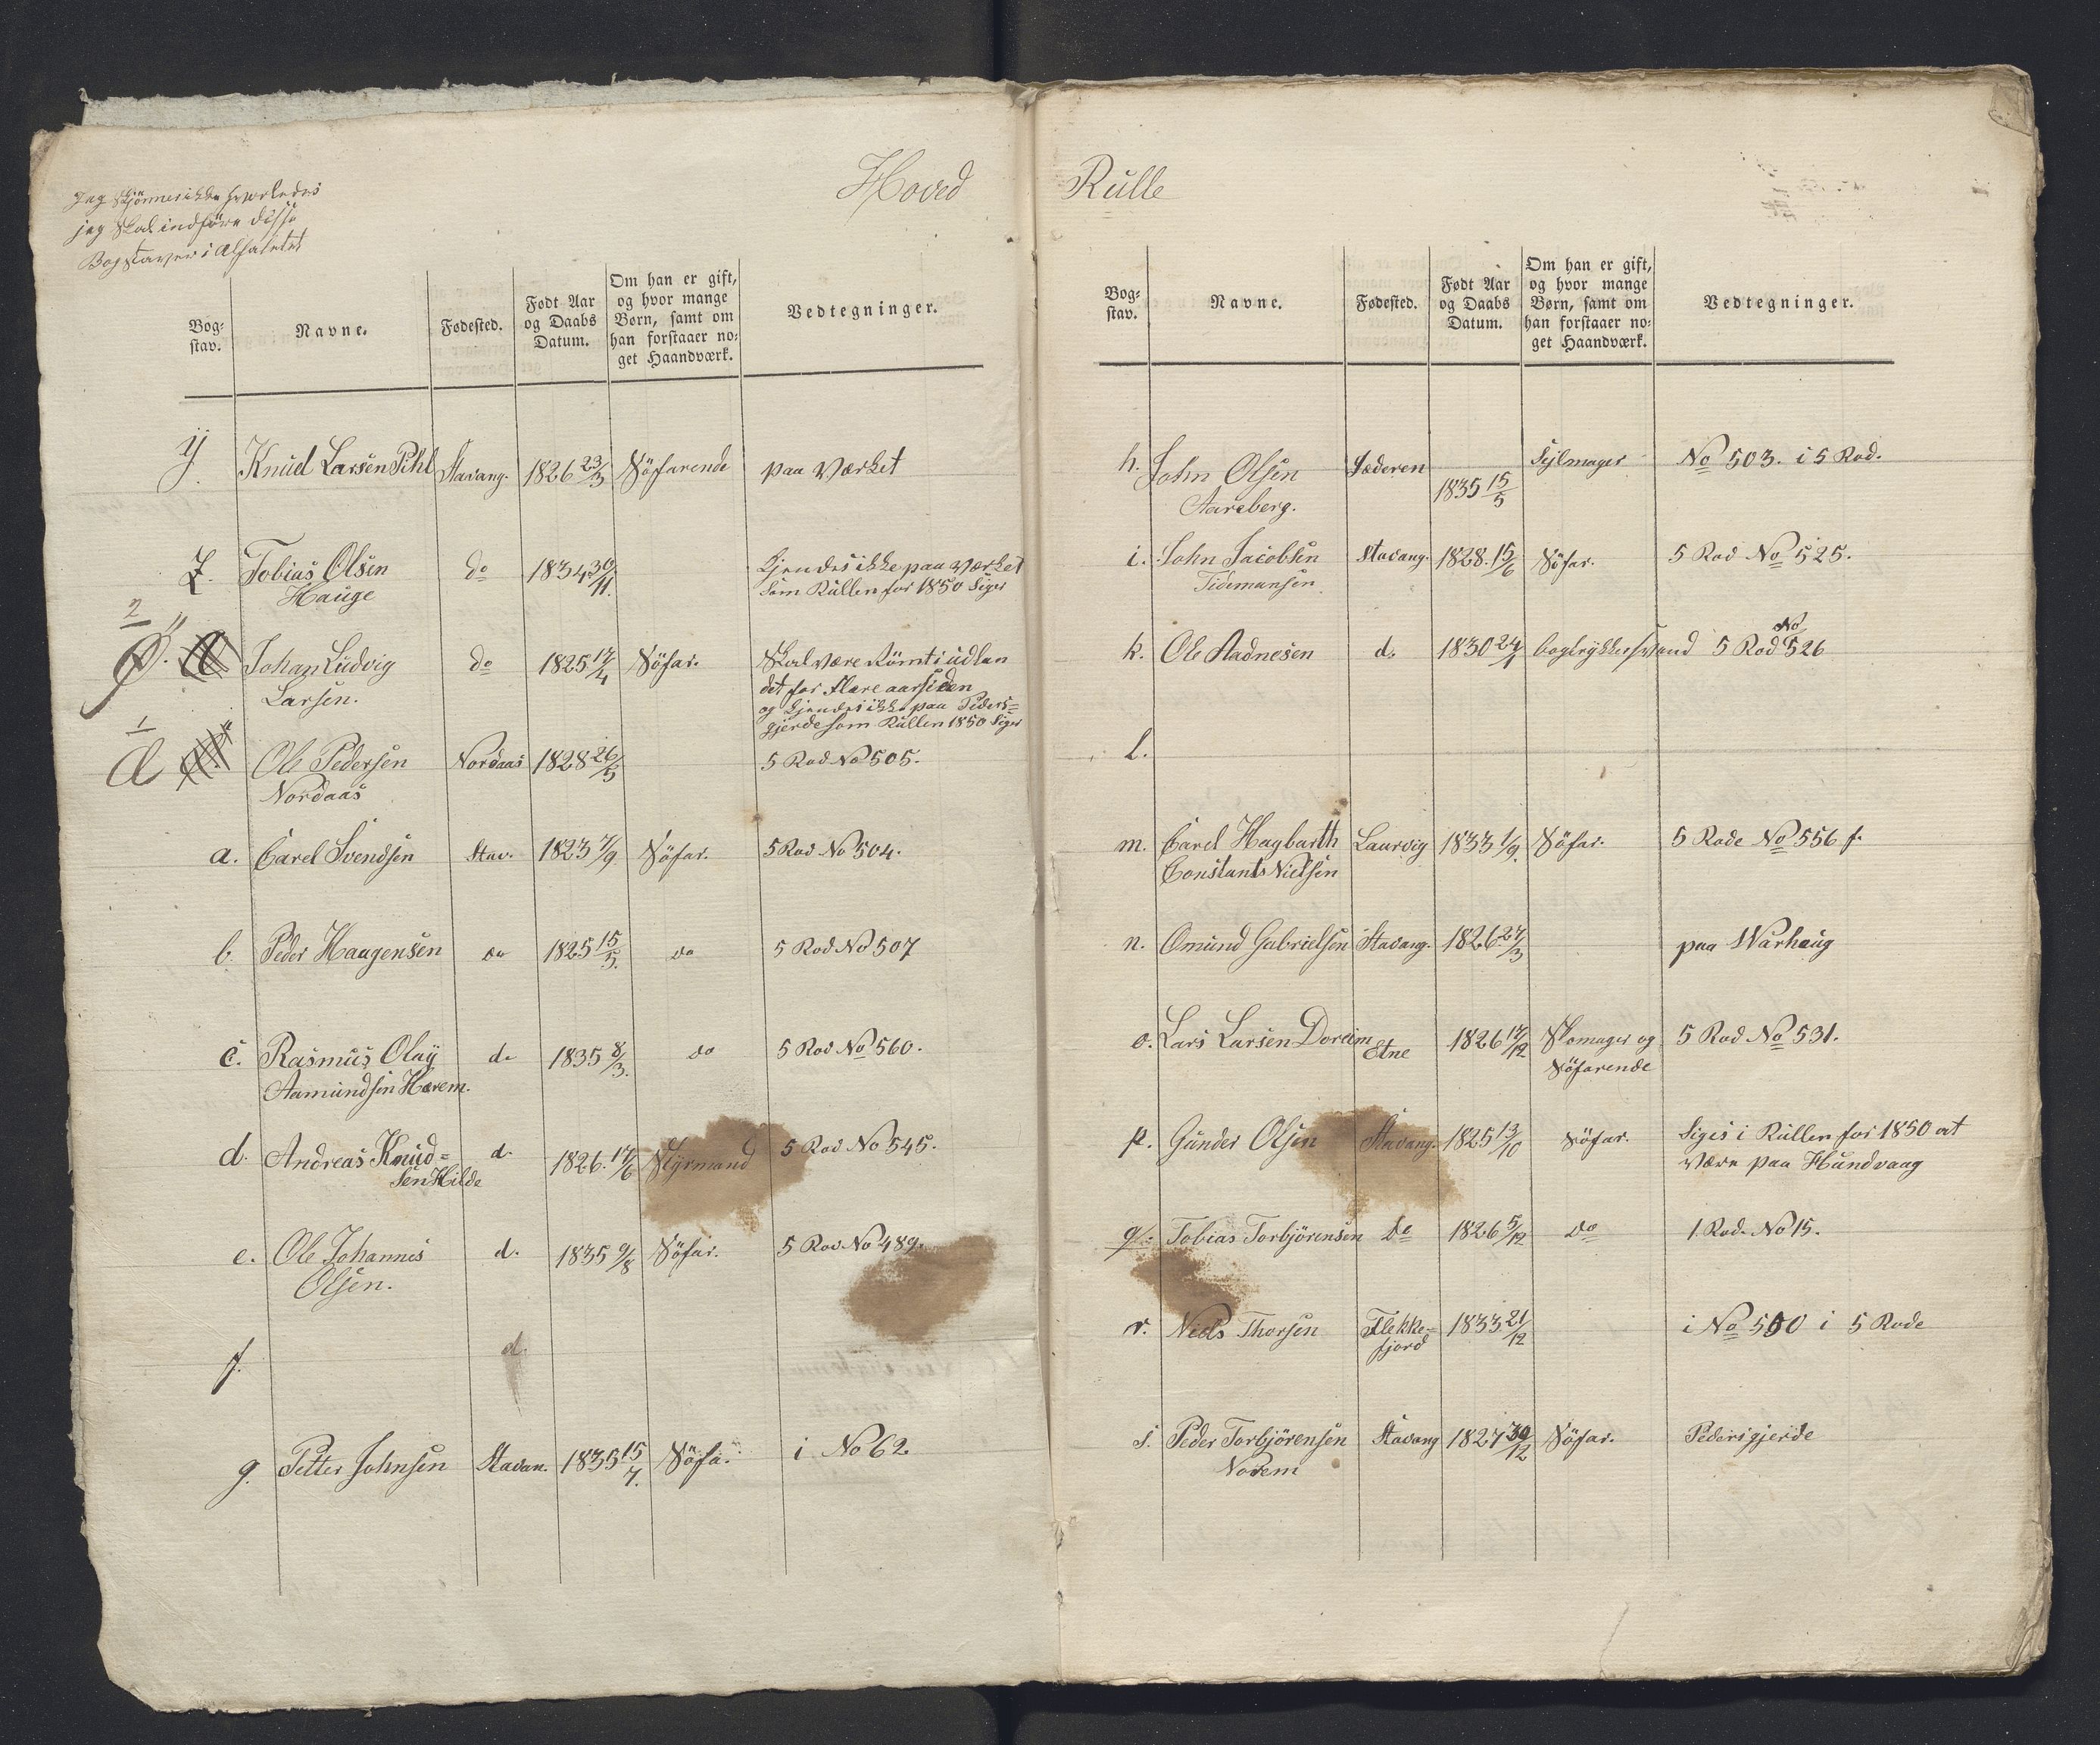 Hoved
Jeg skjönner ikke hvorledes
jeg skal indföre disse
Bogstaver i Alfabetet
Bog-
stav.
Navne.
Fødested.
Født Aar
og Daabs
Datum.
Om han er gift,
og hvor mange
Børn, samt om
han forstaaer no-
get Haandværk.
Vedtegninger.
ÿ. Knud Larsen Pihl Stavang. 1826 23/3 Söfarende paa Værket
Z. Tobias Olsen do 1834 30/11. Kjendes ikke paa Værket
Hauge som Rullen for 1850 siger
2
Ø. Johan Ludvig do 1825 17/4 Söfar. Skal være Römt i udlan
Larsen. det for flere aar siden
og kjendes ikke paa Peders=
gjerde som Rullen 1850 siger
1
Ole Pedersen Nordaas 1828 26/5 5 Rod No 505.
Nordaas
a. Carel Svendsen Stav. 1823 7/9 Söfar. 5 Rod No 504.
b. Peder Haagensen do 1825 15/5. do 5 Rod No 507
c. Rasmus Olay do 1835 8/3. do 5 Rod No 560.
Aamundsen Harem.
d. Andreas Knud= d. 1826. 17/6 Styrmand 5 Rod No 545.
sen Hilde
e. Ole Johannes d. 1835 9/8 Söfar. 5 Rod No 489.
Olsen.
f. d.
g. Petter Johnsen Stavan. 1835 15/7. Söfa. i No 62.
Rulle
Bog-
stav.
Navne.
Fødested.
Født Aar
og Daabs
Datum.
Om han er gift,
og hvor mange
Børn, samt om
han forstaaer no-
get Haandværk.
Vedtegninger.
h. John Olsen Jæderen 1835 15/5 Sejlmager No 503. i 5 Rod.
Aareberg.
i. John Jacobsen Stavang. 1828. 15/6 Söfar. 5 Rod No 525.
Tidemansen
k. Ole Aadnesen do 1830 24/1 bogtrykkersvend 5 Rod No 526
l.
m. Carel Hagbarth Laurvig 1833 1/9. Söfar. 5 Rode No 556 f.
Constants Nielsen
n. Omund Gabrielsen Stavang. 1826 27/3 paa Warhaug
o. Lars Larsen Doreim Etne 1826 17/12 Skomager og 5 Rod No 531.
Söfarende
p. Gunder Olsen Stavang. 1825 13/10 Söfar. Siges i Rullen for 1850 at
være paa Hundvaag
q. Tobias Torbjörensen do 1826 5/12 do 1 Rod. No 15.
r. Niels Thorsen Flekke= 1833 21/12 i No 500 i 5 Rode
fjord
s. Peder Torbjörensen Stavang 1827 30/12 Söfar. Pedersgjerde
Norem